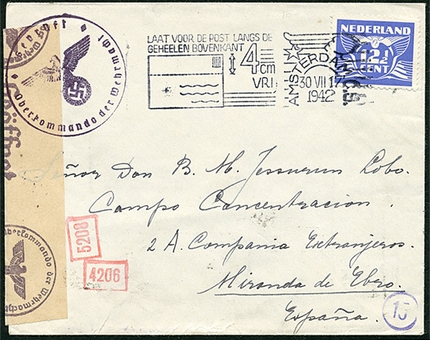 LAAT VOOR DE POST LANGS DE
GEHEELEN BOVENKANT
4 cm
VRIJ
AMSTERDAM
30 VII
1942
NEDERLAND
12½
CENT
Oberkommando der Wehrmacht
Geöffnet
Oberkommando der Wehrmacht
Señor Don B. M. Jessurun Lobo.
Campo Concentracion.
2 A. Compania Extranjeros.
Miranda de Ebro.
España.
5208
4206
15